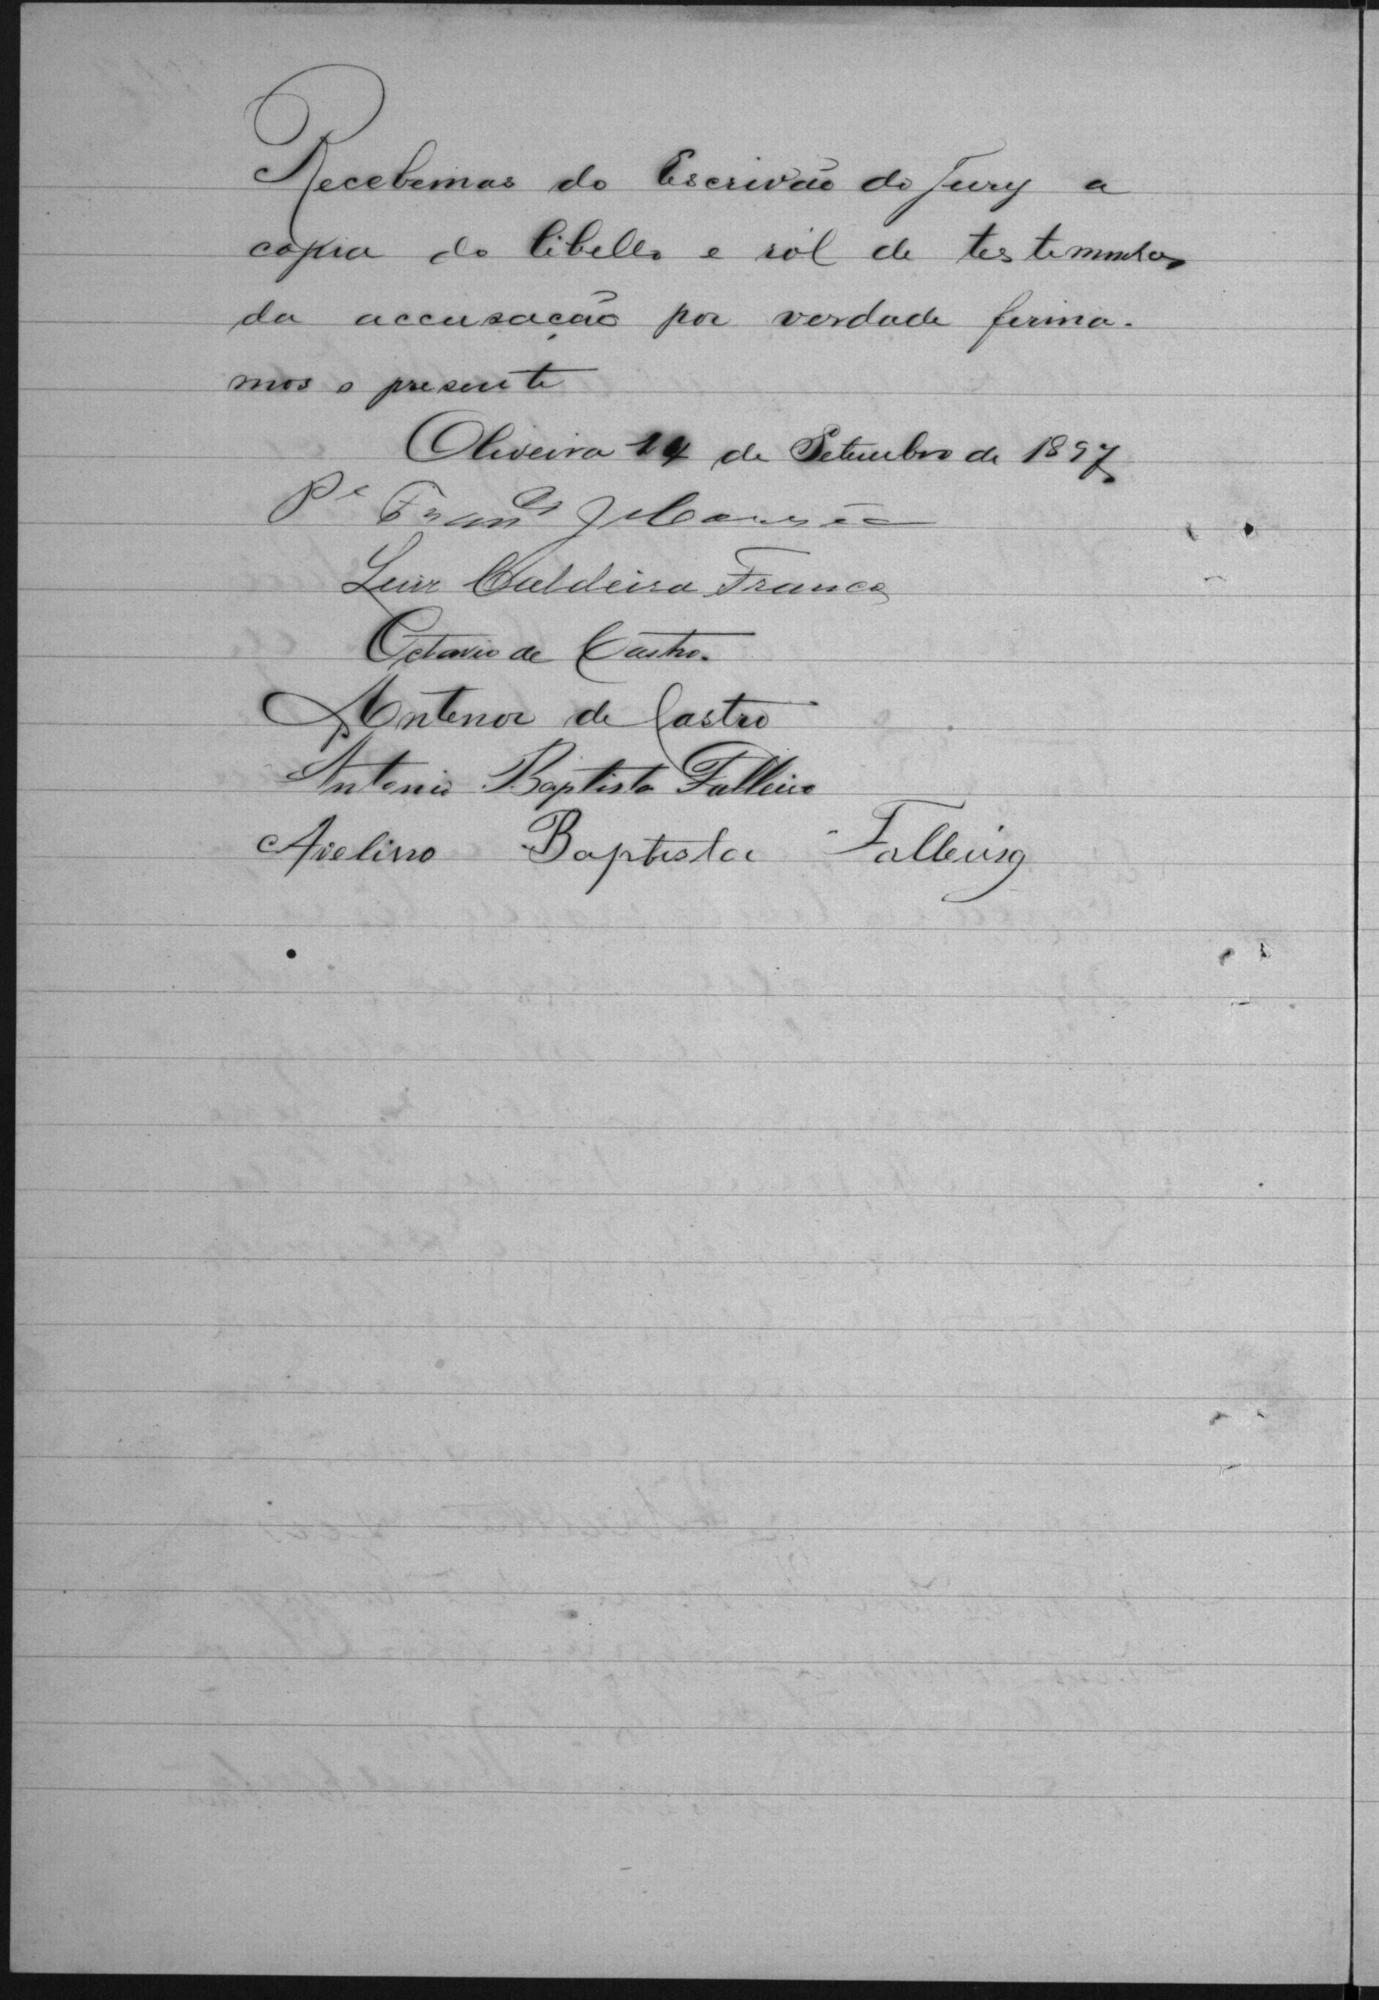 Recebemos do Escrivão do Jury a
copia do libello e ról de testemunhas
da accusação por verdade firma-
mos o presente
Oliveira 14 de Setembro de 1897
Pe Franco
Luiz Caldeira Franco
Octavio de Castro.
Antenor de Castro
Antonio Baptista Falleiro
Avelino Baptista Falleiro